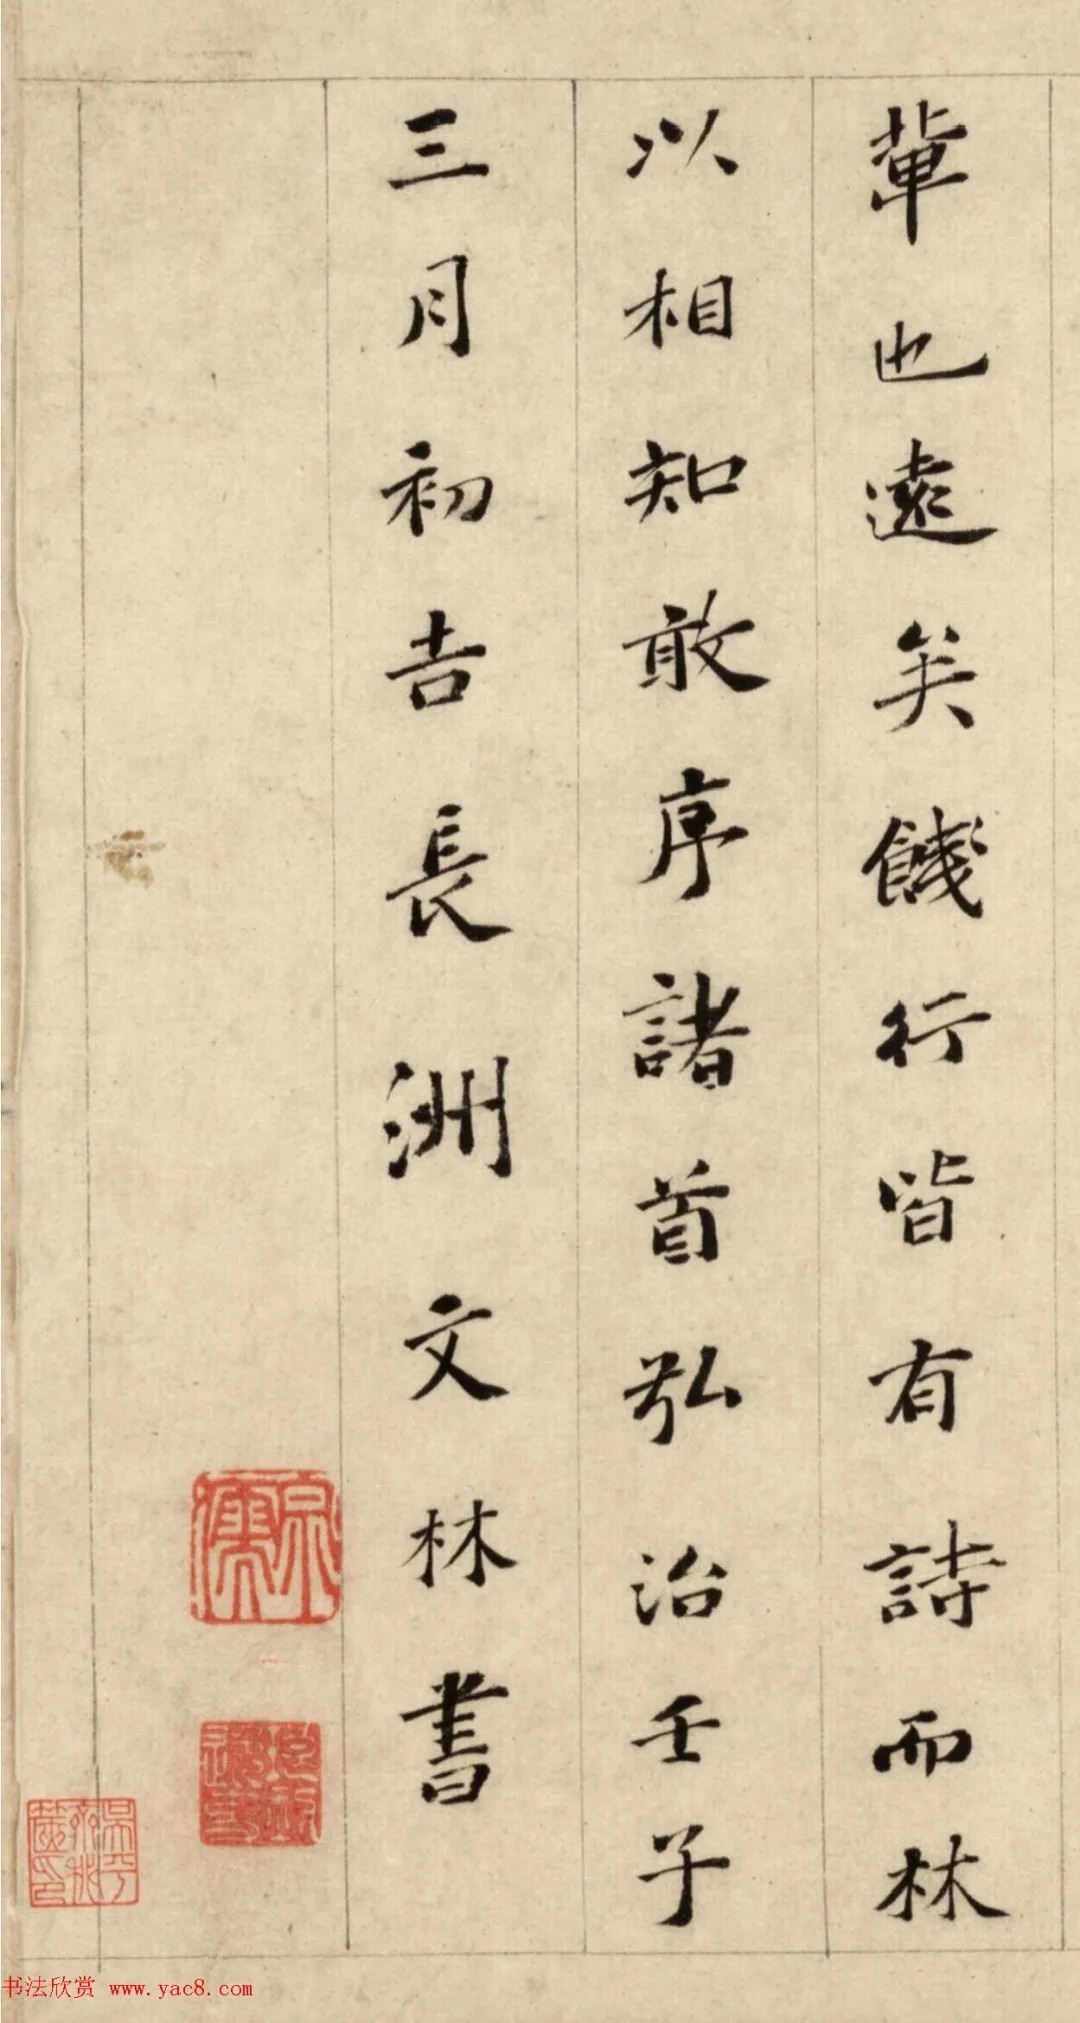 輩也遠矣餞行皆有詩而林
以相知敢序諸首弘治壬子
三月初吉長洲文林書
书法欣赏 www.yac8.com